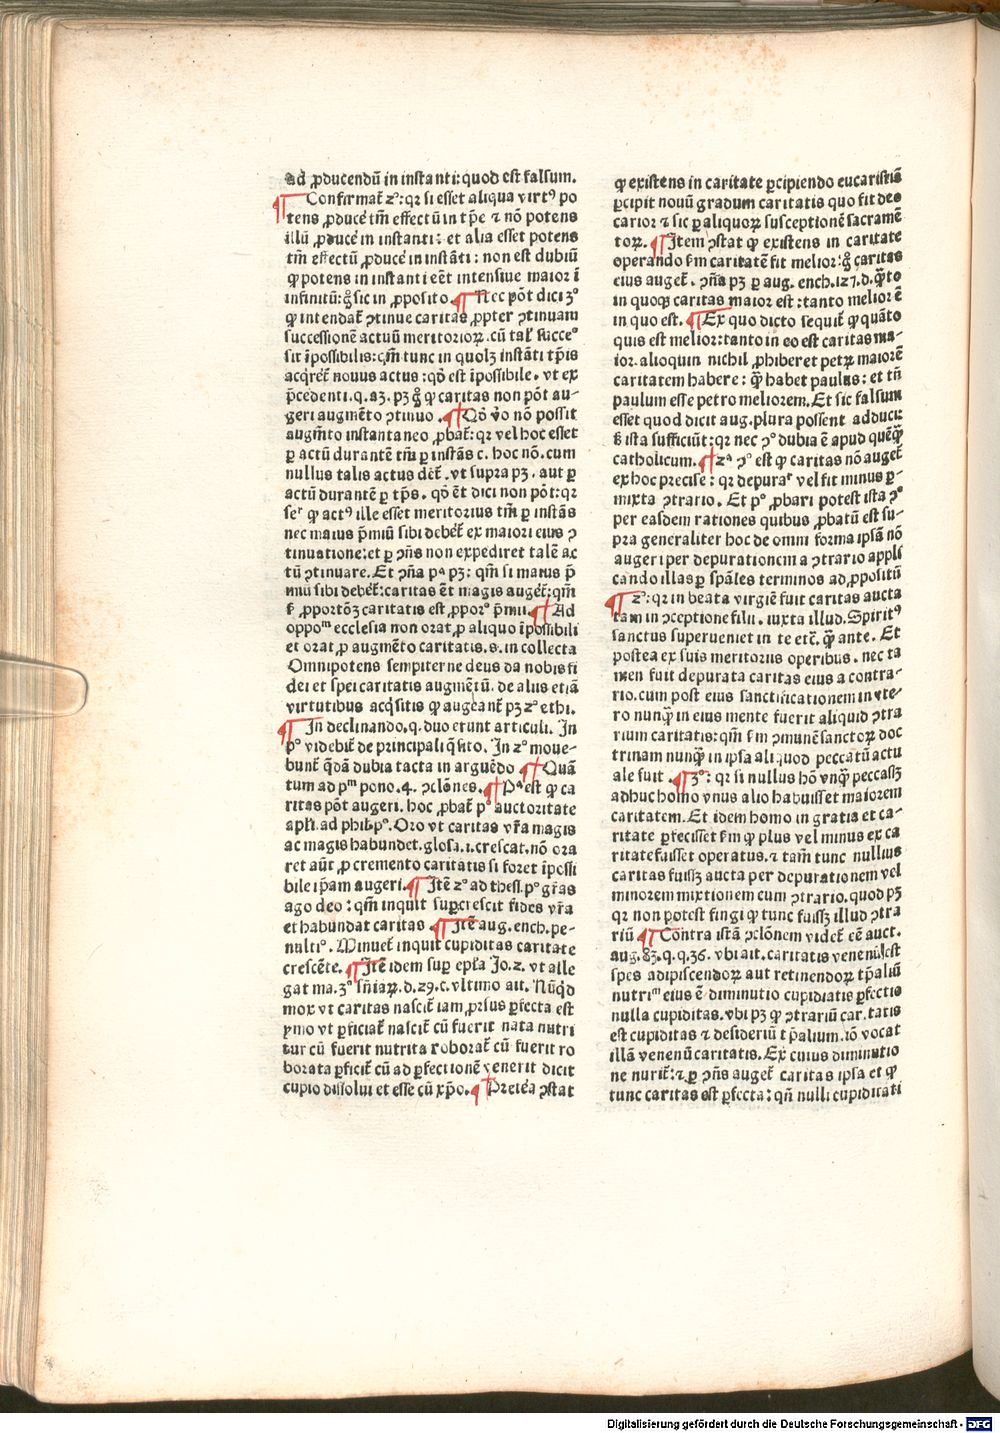 ad ꝓducendū in instanti: quod est falsum.
¶ Confirmat̄ zͦ: qꝛ si esset aliqua virtꝰ po
tens ꝓduce̅ tm̄ effectū in tp̄e ⁊ nō potens
illū ꝓduce̅ in instanti: et alia esset potens
tm̄ effectū ꝓduce̅ in instāti: non est dubiū
ꝙ potens in instanti eēt intensiue maior ī
infinitū: g̊ sic in ꝓposito ¶ Nec pōt dici ꝫͦ
ꝙ intendat̄ ꝯtinue caritas ꝓpter ꝯtinuam
successionē actuū meritorioꝝ. cū tal̄ succeͦ
sit īpossibilis: qm̄ tunc in quolꝫ instāti tp̄is
acq̄ret̄ nouus actus: qd̄ est īpossibile. vt ex
p̄cedenti. q. a3. pꝫ g̊ ꝙ caritas non pōt au-
geri augmēto ꝯtinuo. ¶ Qd̄ v̄o nō possit
augm̄to instantaneo ꝓbat̄: qꝛ vel hoc esset
ꝑ actū durantē tm̄ ꝑ instās c. hoc nō. cum
nullus talis actus det̄. vt supra pꝫ. aut ꝑ
actū durantē ꝑ tp̄s. qd̄ ēt dici non pōt: qꝛ
seʳ ꝙ actꝰ ille esset meritorius tm̄ ꝑ instās
nec maius p̄miū sibi debet̄ ex maiori eius ꝯ
tinuatione: et ꝑ ꝯn̄s non expediret talē ac
tū ꝯtinuare. Et ꝯn̄a pᵃ pꝫ: qm̄ si maius p̄
miū sibi debet̄: caritas ēt magis auget̄: qm̄
ẜm ꝓportōꝫ caritatis est ꝓporͦ p̄mii. ¶ Ad
oppoᵐ ecclesia non orat ꝓ aliquo īpossibili
et orat ꝓ augmēto caritatis. s. in collecta
Omnipotens sempiterne deus da nobis fi
dei et spei caritatis augmētū. de aliis etiā
virtutibus acq̄sitis ꝙ augeant̄ pꝫ zͦ ethi.
¶ In declinando. q. duo erunt articuli. In
pͦ videbit̄ de principali q̄sito. In zͦ moue-
bunt̄ q̄dā dubia tacta in arguēdo ¶ Quā
tum ad pᵐ pono. 4. ꝯclōnes. ¶ Pᵃ est ꝙ ca
ritas pōt augeri. hoc ꝓbat̄ pͦ auctoritate
apl̄i ad phil. pͦ. Oro vt caritas vr̄a magis
ac magis habundet. glosa. i. crescat. nō ora
ret aūt ꝓ cremento caritatis si foret īpossi
bile ip̄am augeri. ¶ Itē zͦ ad thess. pͦ gr̄as
ago deo: qm̄ inquit suꝑcrescit fides vr̄a
et habundat caritas ¶ Itē aug. ench. pe-
nultiͦ. Minuet̄ inquit cupiditas caritate
crescēte. ¶ Itē idem suꝑ epl̄a Jo. z. vt alle
gat ma. 3ͦ sn̄iaꝝ. d. 29. c. vltimo ait. Nūqd̄
mox vt caritas nascit̄ iam ꝓrsus ꝑfecta est
ymo vt ꝑficiat̄ nascit̄ cū fuerit nata nutri
tur cū fuerit nutrita roborat̄ cū fuerit ro
borata ꝑficit̄ cū ad ꝑfectionē venerit dicit
cupio dissolui et esse cū xp̄o. ¶ Preteē̄a ꝯstat
ꝙ existens in caritate ꝑcipiendo eucaristiā
ꝑcipit nouū gradum caritatis quo fit deo
carior ⁊ sic ꝑ aliquoꝝ susceptionē sacramē
toꝝ. ¶ Item ꝯstat ꝙ existens in caritate
operando ẜm caritatē fit melior: g̊ caritas
eius auget̄. ꝯn̄a pꝫ ꝑ aug. ench. 127. d. q̄to
in quoqꝫ caritas maior est: tanto melior ē
in quo est. ¶ Ex quo dicto sequit̄ ꝙ quāto
quis est melior: tanto in eo est caritas ma-
ior. alioquin nichil ꝓhiberet petꝝ maiorē
caritatem habere: q̄ꝫ habet paulus: et tn̄
paulum esse petro meliorem. Et sic falsum
esset quod dicit aug. plura possent adduci:
ẜ ista sufficiūt: qꝛ nec ꝯͦ dubia ē apud quēq̄ꝫ
catholicum. ¶ zᵃ ꝯͦ est ꝙ caritas nō auget̄
ex hoc precise: qꝛ depuraʳ vel fit minus ꝑ-
mixta ꝯtrario. Et pͦ ꝓbari potest ista ꝯͦ
per easdem rationes quibus ꝓbatū est su-
pra generaliter hoc de omni forma ipsā nō
augeri per depurationem a ꝯtrario appli
cando illas ꝑ spāles terminos ad ꝓpositū
¶ zͦ: qꝛ in beata virgiē fuit caritas aucta
tam in ꝯceptione filii. iuxta illud. Spiritꝰ
sanctus superueniet in te etc̄. q̄ꝫ ante. Et
postea ex suis meritoriis operibus. nec ta
men fuit depurata caritas eius a contra-
rio. cum post eius sanctificationem in vte-
ro nunq̄ꝫ in eius mente fuerit aliquid ꝯtra
rium caritatis: qm̄ ẜm ꝯmunē sanctoꝝ doc
trinam nunq̄ꝫ in ipsa aliquod peccatū actu
ale fuit. ¶ 3ͦ: qꝛ si nullus hō vnq̄ꝫ peccassꝫ
adhuc homo vnus alio habuisset maiorem
caritatem. Et idem homo in gratia et ca-
ritate ꝑfecisset ẜm ꝙ plus vel minus ex ca
ritate fuisset operatus. ⁊ tam̄ tunc nullius
caritas fuissꝫ aucta per depurationem vel
minorem mixtionem cum ꝯtrario. quod pꝫ
qꝛ non potest fingi ꝙ tunc fuissꝫ illud ꝯtra
riū ¶ Contra istā ꝯclōnem videt̄ eē auct.
aug. 83. q. q. 36. vbi ait. caritatis venenū est
spes adipiscendoꝝ aut retinendoꝝ tp̄aliū
nutriᵐ eius ē diminutio cupidiatis ꝑfectio
nulla cupiditas. vbi pꝫ ꝙ ꝯtrariū caritatis
est cupiditas ⁊ desideriū tp̄alium. iō vocat
illā venenū caritatis. Ex cuius diminutio
ne nurit̄: ⁊ ꝑ ꝯn̄s auget̄ caritas ipsa et ꝙ
tunc caritas est ꝑfecta: qn̄ nulli cupiditati
Digitalisierung gefördert durch die Deutsche Forschungsgemeinschaft - DFG